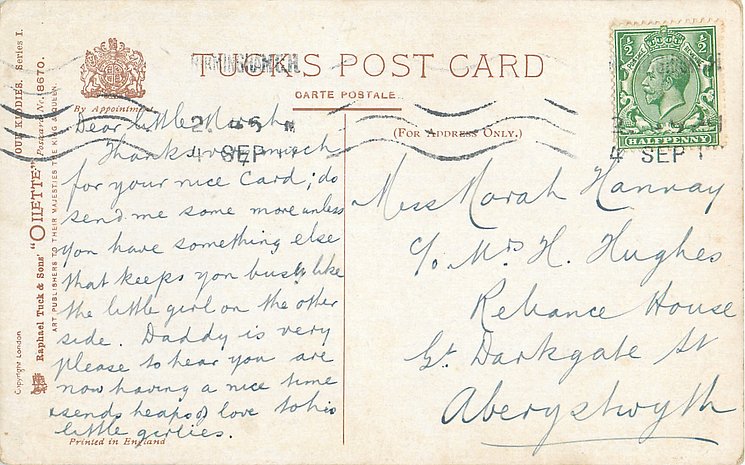 TUCK'S POST CARD
CARTE POSTALE.
By Appointment.
(FOR ADDRESS ONLY.)
½ ½
HALFPENNY
2. 45 M
4 SEP 1
4 SEP 1
Dear little
Thank you very much
for your nice card; do
send me some more unless
you have something else
that keeps you busy like
the little girl on the other
side. Daddy is very
please to hear you are
now having a nice time
& sends heaps of love to his
little girlies.
Miss Morah Hannay
c/o Mrs H. Hughes
Reliance House
Gt. Darkgate St
Aberystwyth
Printed in England
Copyright London
Raphael Tuck & Sons' "OILETTE" Postcard No. 8670.
OUR KIDDIES. Series I.
ART PUBLISHERS TO THEIR MAJESTIES THE KING & QUEEN.